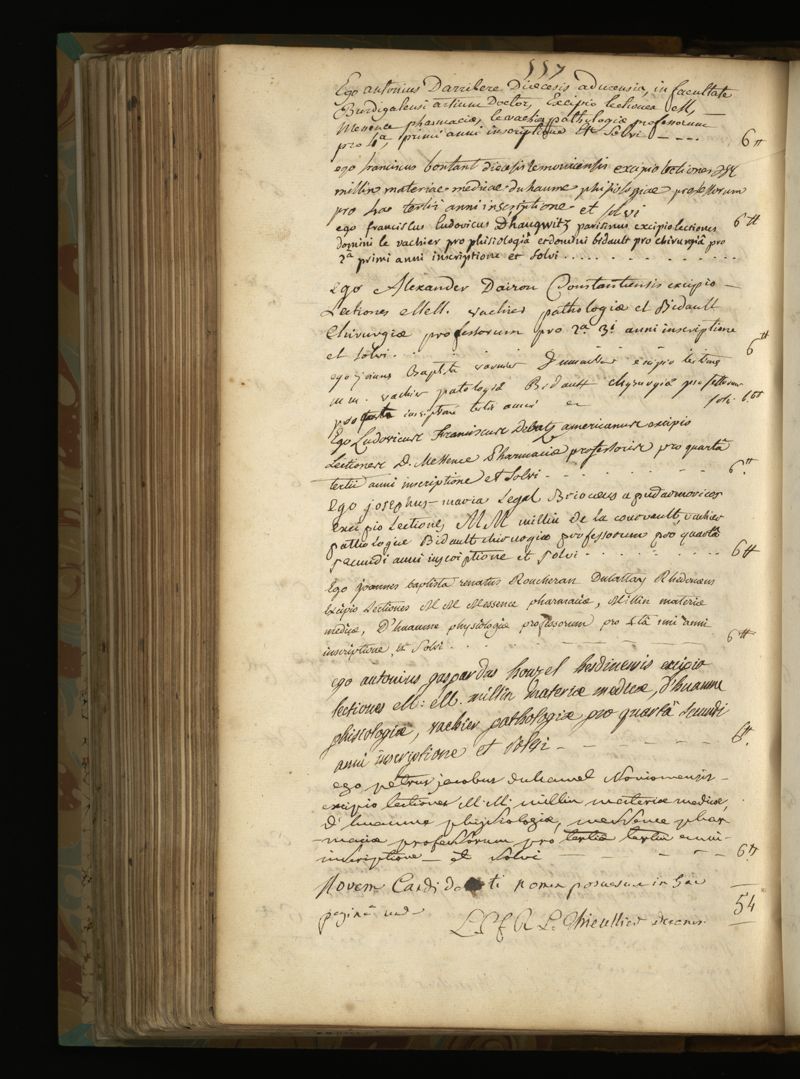 557
Ego antonius Darribere Diœcesis aducensis, in facultate
Burdigalensi artium Doctor, Excipio lectiones MM,
Messence pharmaciæ, le vachier pathologiæ professorum
pro 1a primi anni inscriptione et Solvi - - - - 6 tt
ego franciscus bontant diecesis lemovicensis excipio lectiones
millin materiae medicae duhaume phisiologiae professorum
pro hac tertii anni inscriptione et solvi
ego franciscus ludovicus Dhaugwitz parisinus excipio lectiones 6 tt
domini le vachier pro phisiologiâ et domini bidault pro chirurgiâ pro
2ª primi anni inscriptione et solvi . . . . . . . . .
Ego Alexander Dairon Constantiensis excipio -
Lectiones MM. vachier pathologiæ et Bidault
Chirurgiæ professorum pro 2.ª 3.i anni inscriptione
et solvi . . . . 6 tt
ego joannes Baptiste excipio lectiones
m.m. vachier patologiæ Bidault chyrurgiæ professorum
pro inscriptione tertii anni et solvi 6 tt
Ego Ludovicus Franciscus Debatz americanus excipio
Lectiones D. Messence Pharmaciæ professoris pro quartâ
tertii anni inscriptione et Solvi . . . . . . . . 6 tt
Ego josephus-maria Legal Briocæus
excipio Lectiones MM millin de la courvault, vachier
pathologiæ Bidault chirurgiæ professorum pro quartâ
secundi anni inscriptione et solvi . . . . . . . . 6 tt
Ego joannes baptista renatus Roucheran Dulattay Rhedonæus
Excipio Lectiones M M Messence pharmaciæ, Millin materiæ
medicæ, D'huaume physiologiæ professorum pro 4tâ imi anni
inscriptione, et Solvi . . 6 tt
ego antonius gaspardus houzel hesdinensis excipio
lectiones M: M. millin materiæ medicæ, d'huaume
phisiologiæ, vachier pathologiæ pro quartâ secundi
anni inscriptione et solvi - - - - - - - 6 tt
ego petrus jacobus duhamel Noviomensis -
excipio lectiones M M. millin materiæ medicæ,
d'huaume physiologiæ, messence phar
-maciæ professorum pro tertiâ tertii anni -
inscriptione - et Solvi - - - - - 6 tt
Novem Candidati nomen posuerunt in hac
paginâ 54
L. P. f. R. Le Thieullier decanus